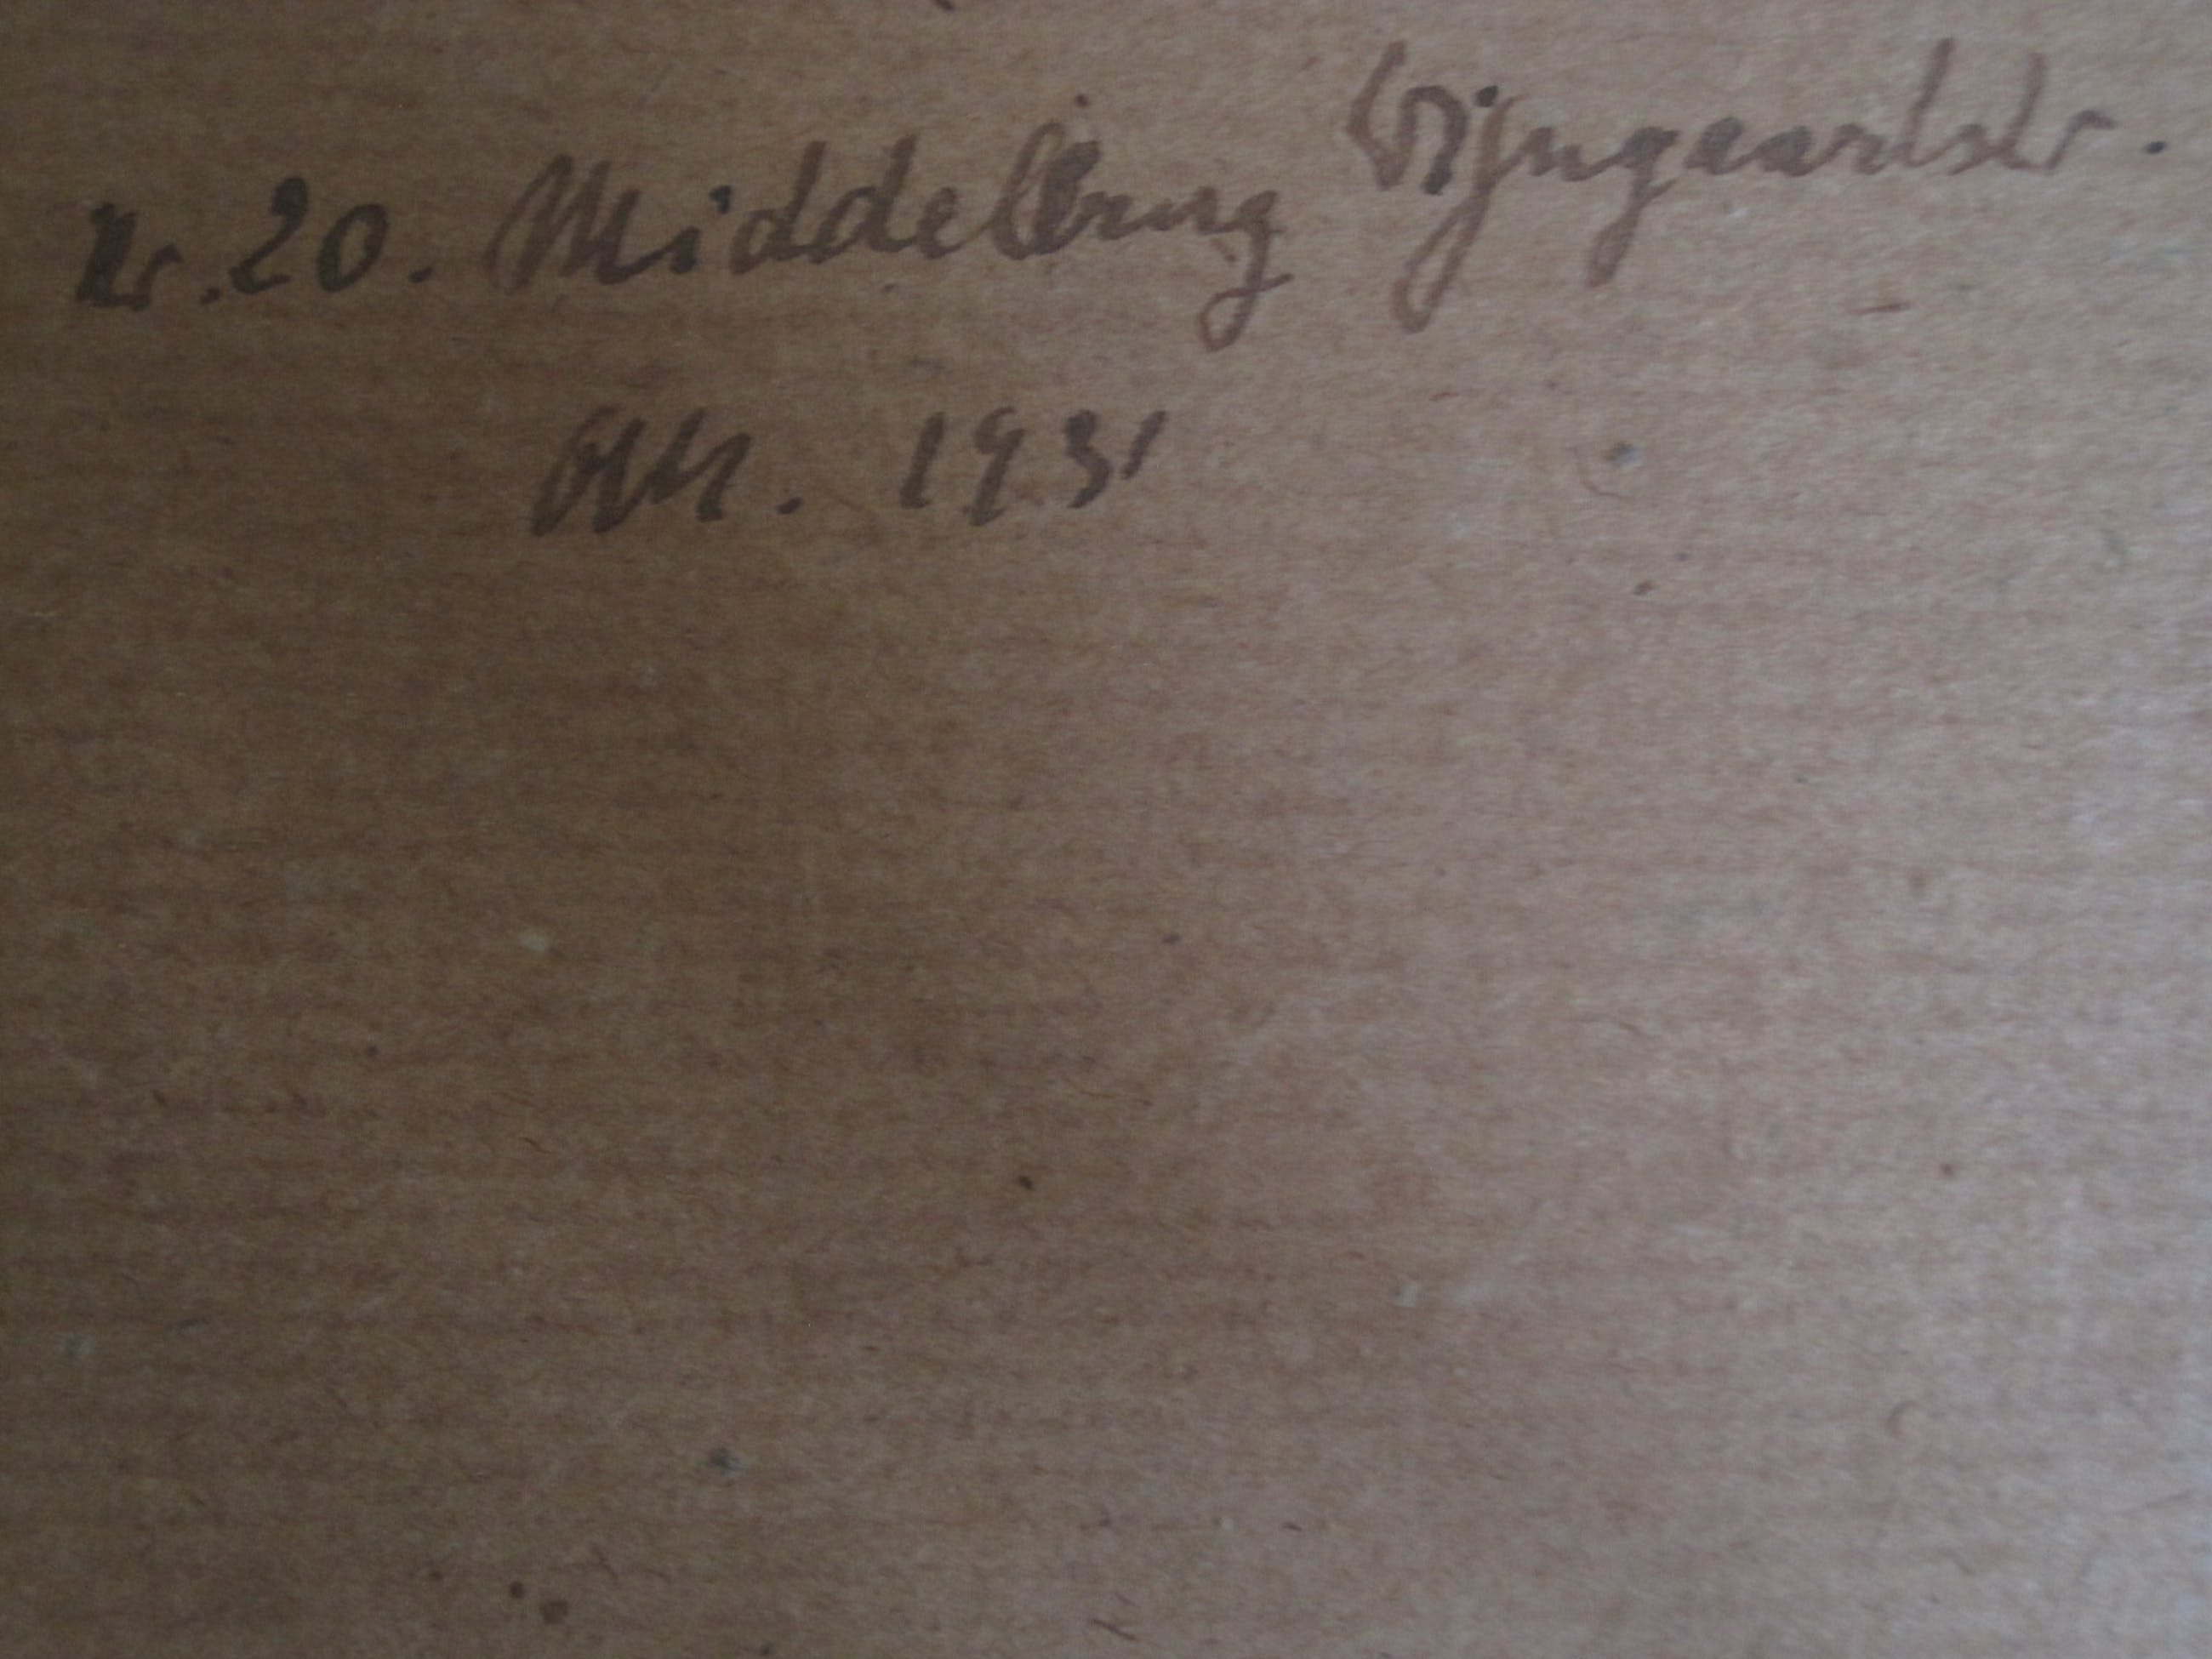 Nr. 20. Middelburg Wijngaartstr.
Okt. 1931